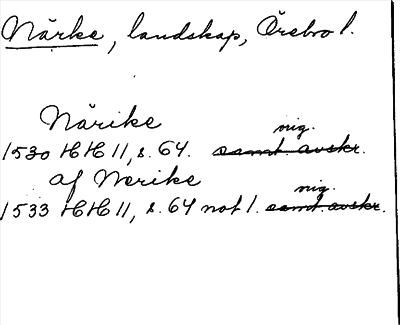 Närke, landskap, Örebro l.
Närike
1530 HH 11, s. 64. samt avskr. orig.
af Nerike
1533 HH 11, s. 64 not 1. samt avskr. orig.